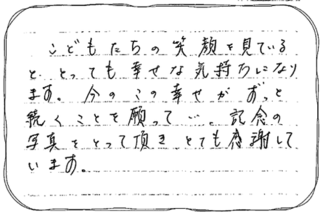 こどもたちの笑顔を見ている
と、とっても幸せな気持ちになり
ます。今のこの幸せがずっと
続くことを願って…。記念の
写真をとって頂きとても感謝して
います。